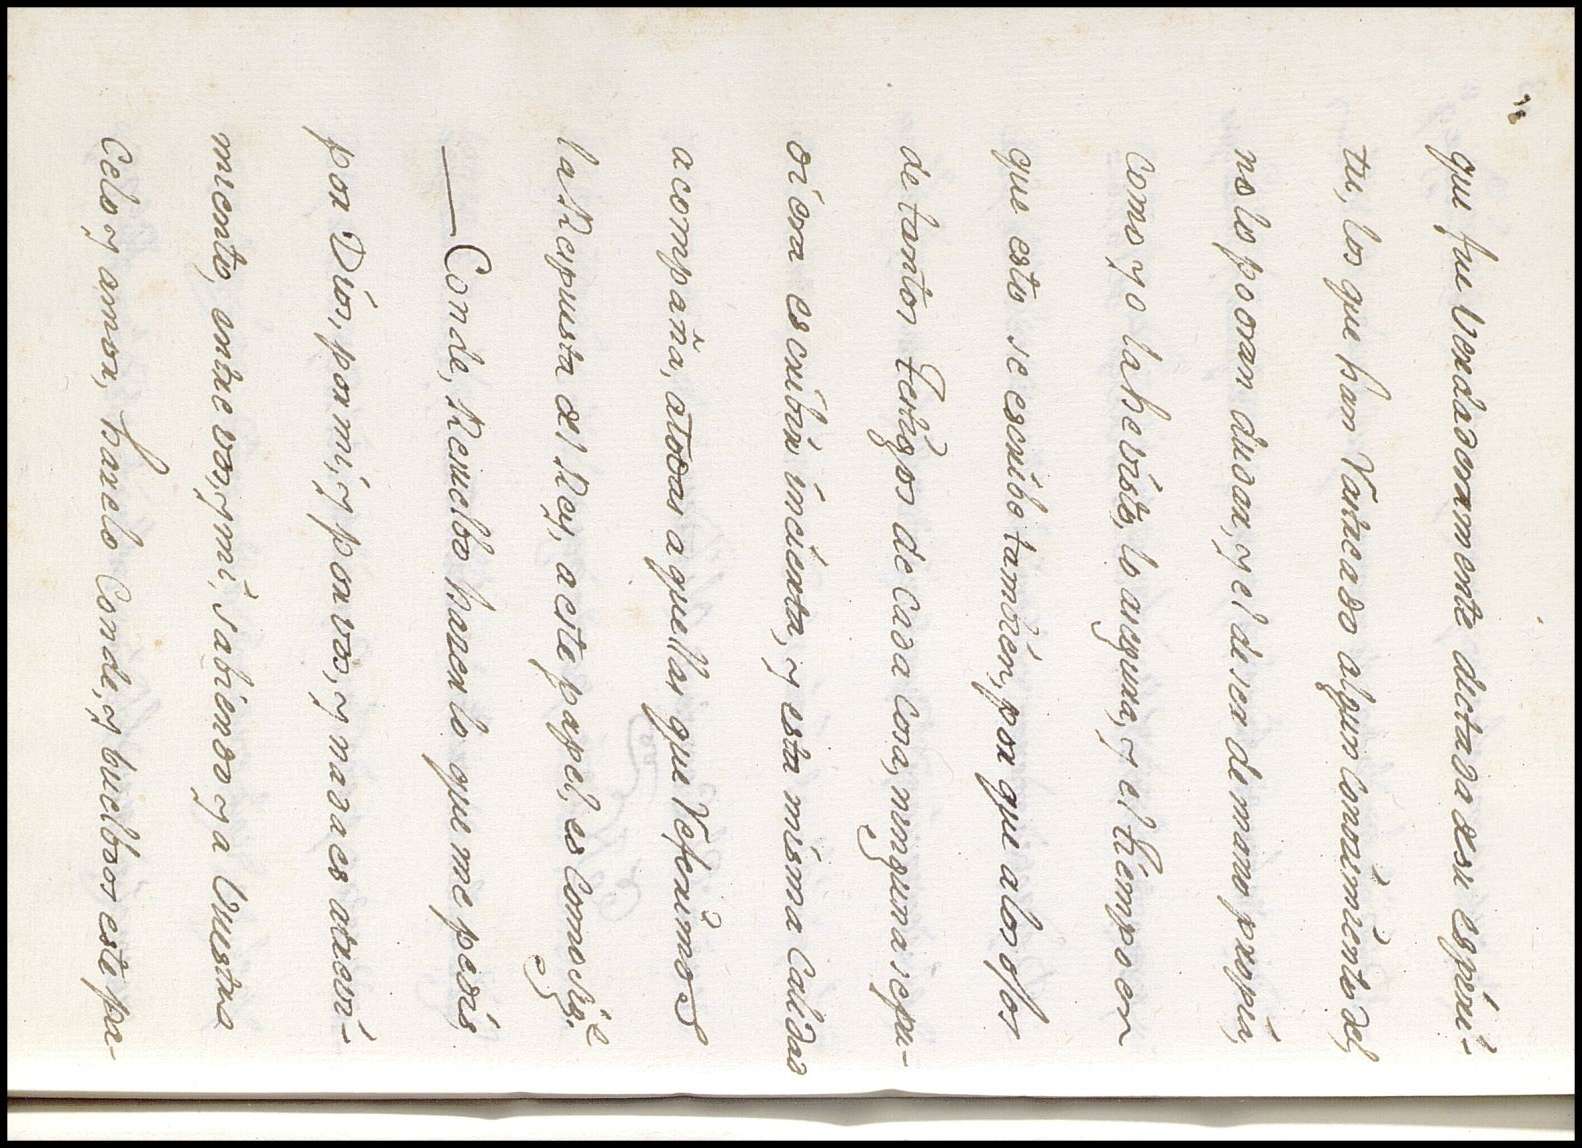 que fue Verdaderamente dictada de su espíri-
tu, los que han Vastreado algun Conosimiento del,
no lo podran dudar, y el de ser de mano propia,
Como yo la he visto, lo asegura, y el tiempo en
que esto se escribe tambien, por que a los ojos
de tantos testigos de cada Cosa, ninguna se pu-
diera escribir incierta, y esta misma Calidad
acompaña, a todas aquellas que Referimos
la Respuesta del Rey, a este papel, es Como sigᵉ.
— Conde, Resuelbo hazer lo que me pedis,
por Dios, por mi, y por vos, y nada es atrevi-
miento, entre vos, y mi, sabiendo yo Vuestro
Celo, y amor, harelo Conde, y buelboos este pa-